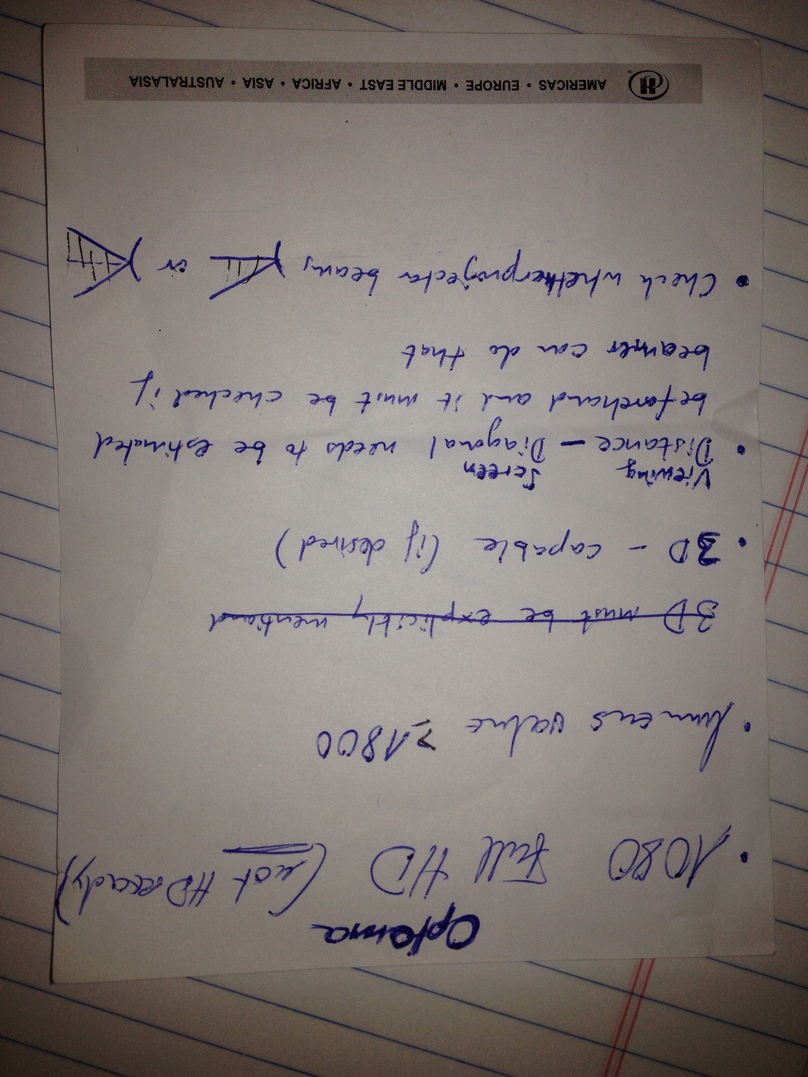 Optoma
• 1080 Full HD (not HD ready)
• lumens value ≥1800
3D must be explicitly mentiond
• 3D - capable (if desired)
Viewing Screen
• Distance – Diagonal needs to be estimated
beforehand and it must be checked if
beamer can do that
• Check whether projector beams or
H AMERICAS • EUROPE • MIDDLE EAST • AFRICA • ASIA • AUSTRALASIA